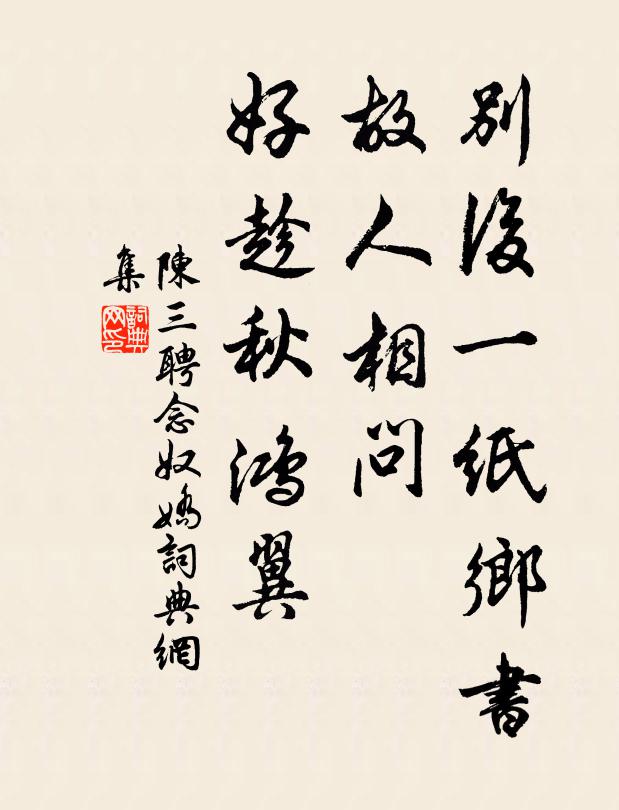 別後一紙鄉書
故人相問
好趁秋鴻翼
陳三聘念奴嬌詞典網
集
詞典网印